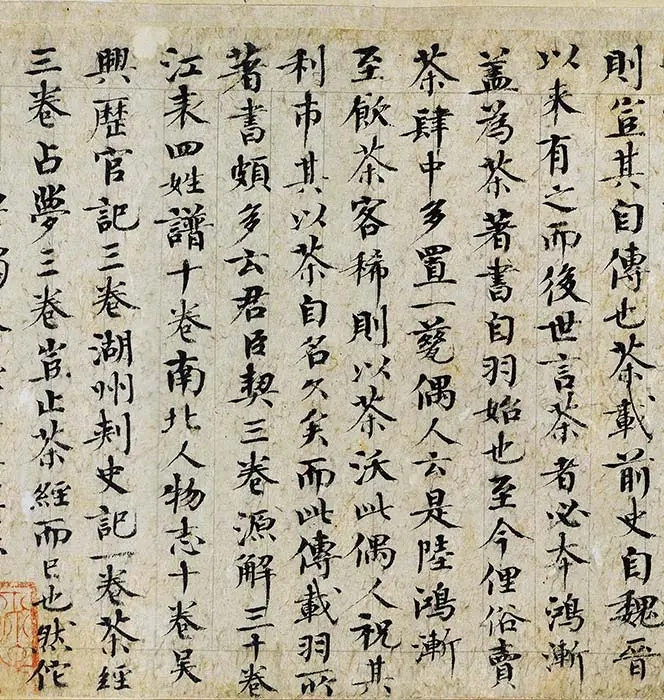 則豈其自傳也茶載前史自魏晉
以来有之而後世言茶者必夲鴻漸
盖為茶著書自羽始也至今俚俗賣
茶肆中多置一甆偶人云是陸鴻漸
至飲茶客稀則以茶沃此偶人祝其
利市其以茶自名久矣而此傳載羽所
著書頗多云君臣契三卷源解三十卷
江表四姓譜十卷南北人物志十卷吳
興歷官記三卷湖州刺史記一卷茶經
三卷占夢三卷豈止茶經而已也然佗